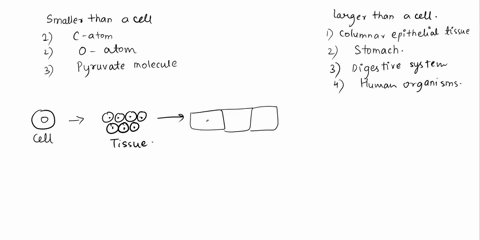 Smaller than a cell
1) C-atom
2) O-atom
3) Pyruvate molecule
larger than a cell.
1) Columnar epithelial tissue
2) Stomach.
3) Digestive system
4) Human organisms.
Cell
Tissue.